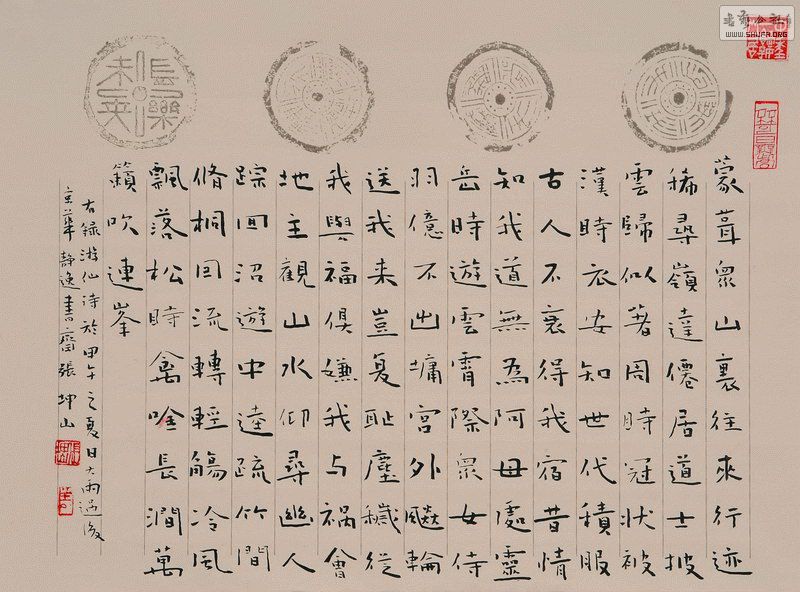 蒙茸眾山裏往來行迹
稀尋嶺達僊居道士披
雲歸似著周時冠狀被
漢時衣安知世代積服
古人不衰得我宿昔情
知我道無為阿母處靈
岳時遊雲霄際眾女侍
羽億不出墉宮外飈輪
送我来豈复恥塵穢從
我與福俱嫌我与禍會
地主觀山水仰尋幽人
踪回沼遊中逵疏竹間
脩桐囙流轉輕觴冷風
飄落松時禽唫長澗萬
籟吹連峯
右録游仙诗於甲午之夏日大雨過後
京華靜逸書齋張坤山
長樂未央
WWW.SHUFA.ORG